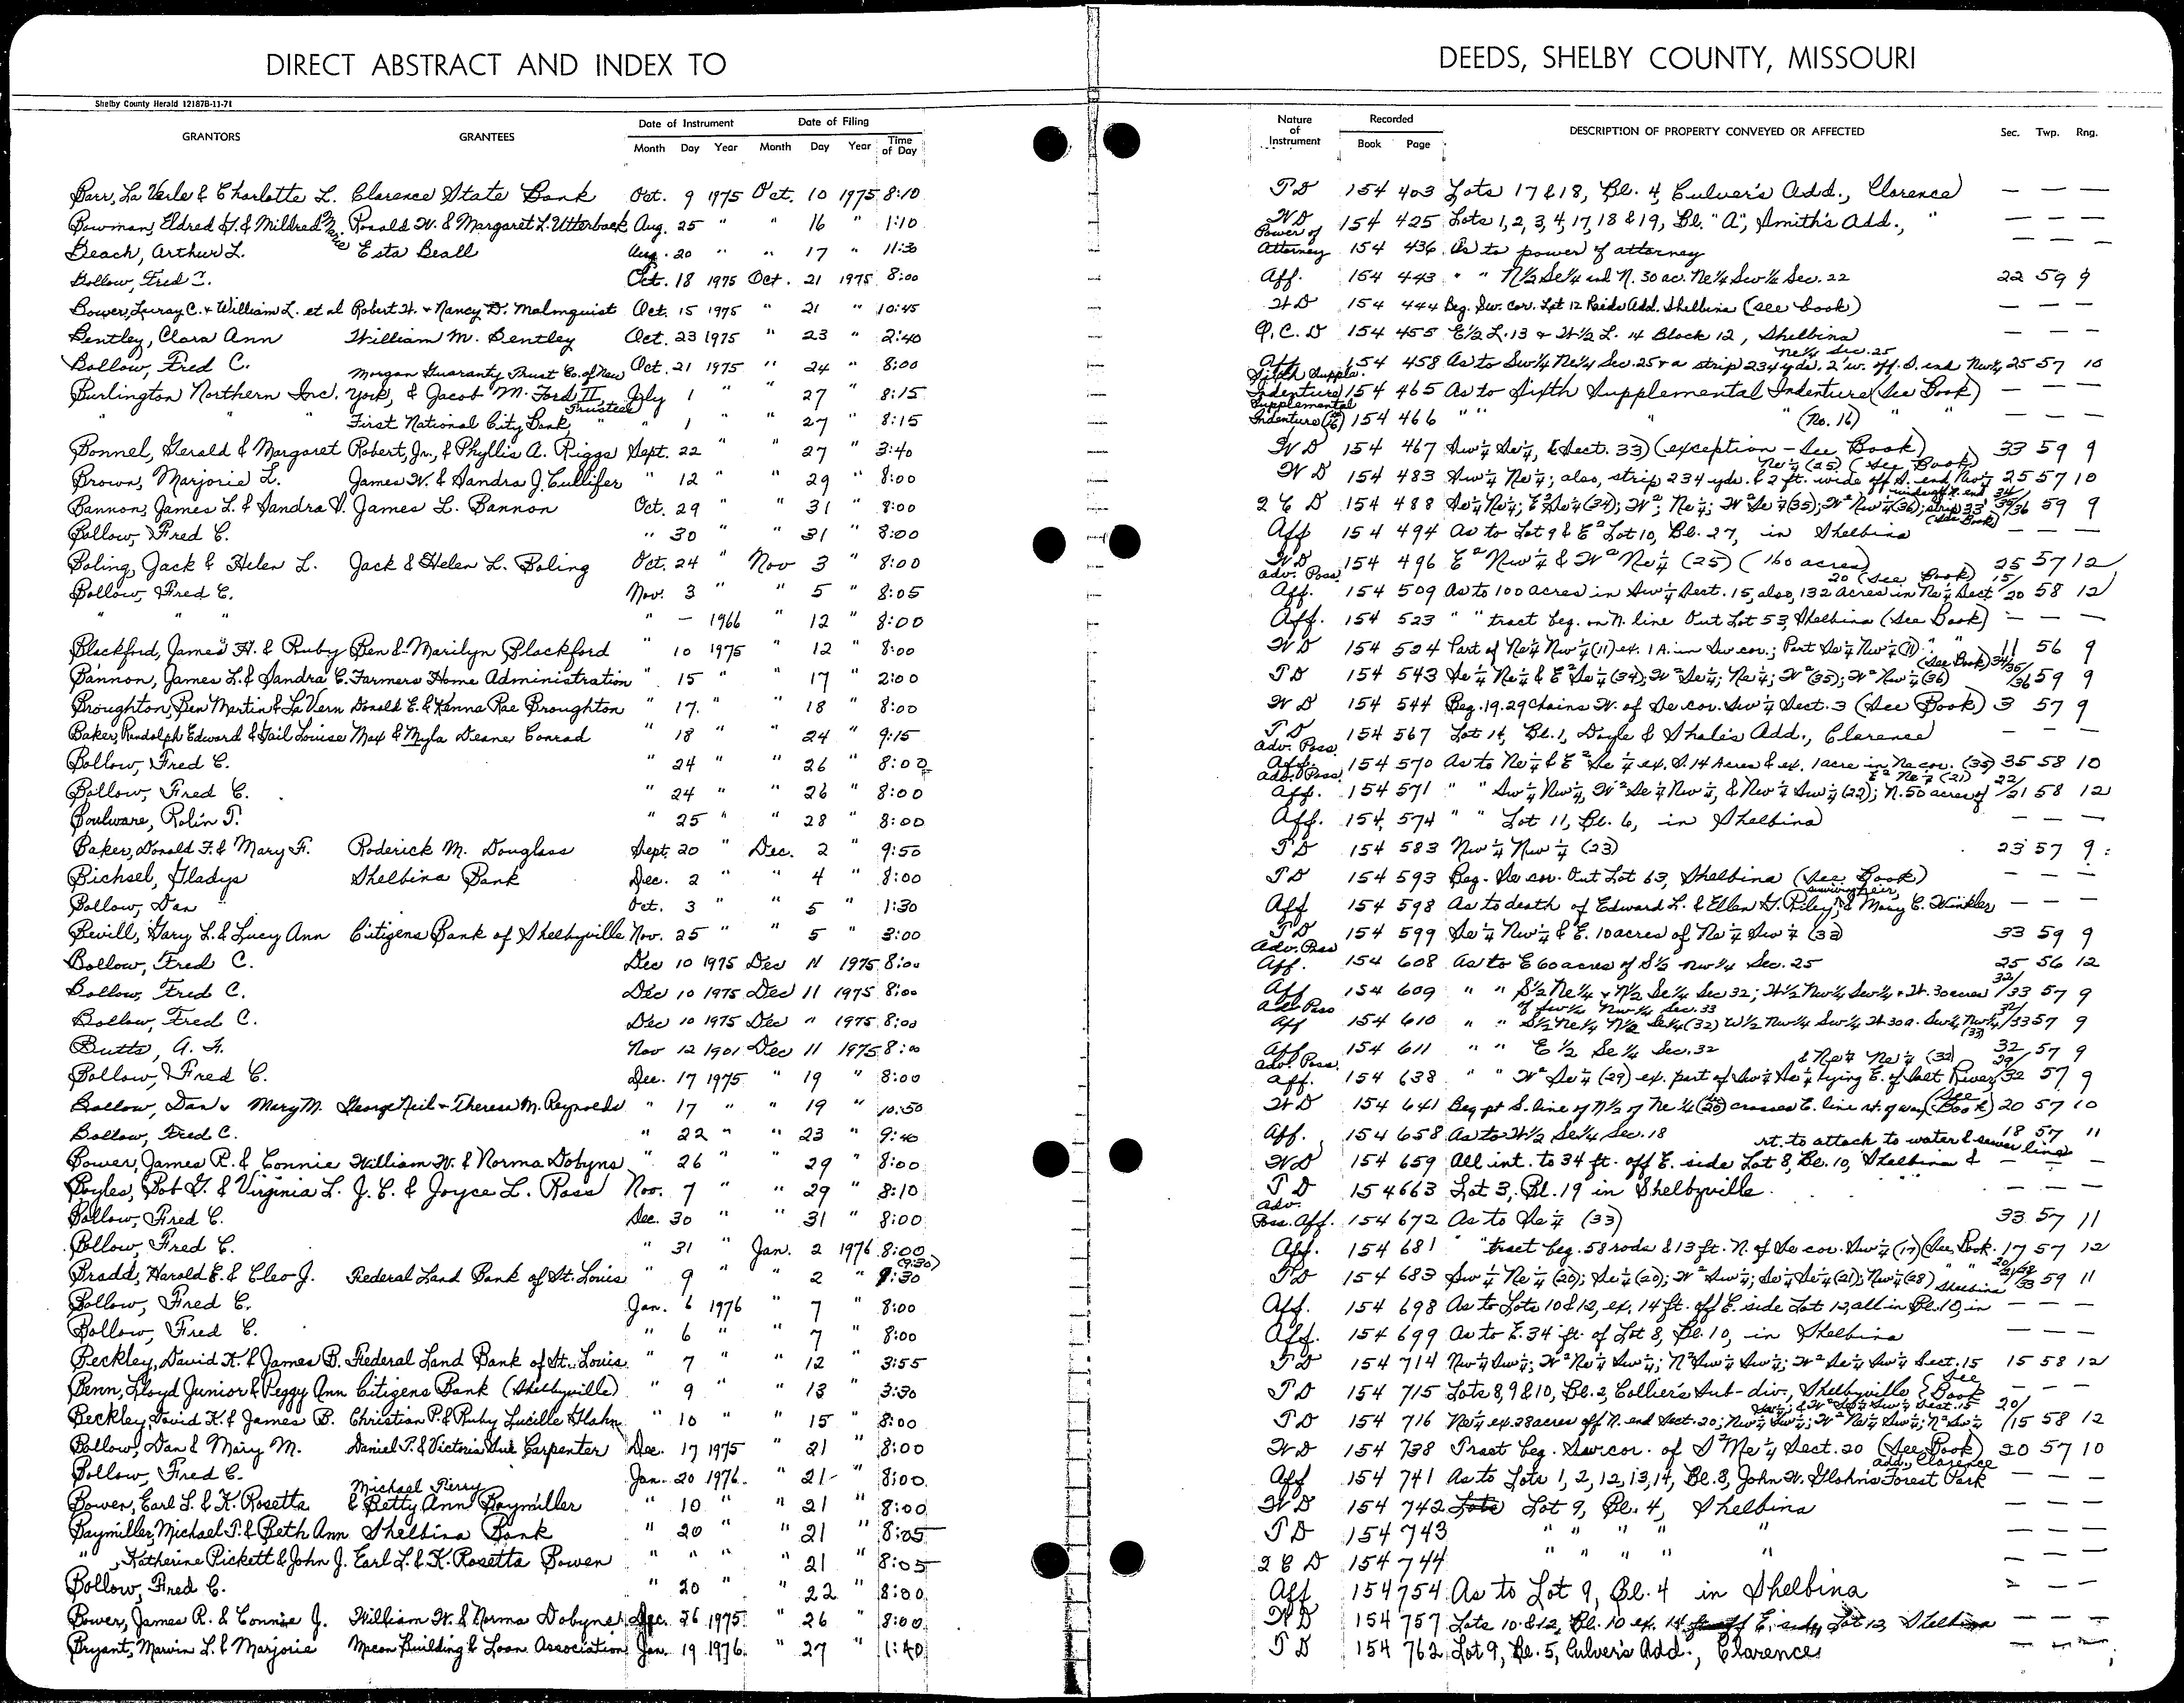 DIRECT ABSTRACT AND INDEX TO
Shelby County Herald 12187B-11-71
GRANTORS GRANTEES Date of Instrument Date of Filing Time of Day
Month Day Year Month Day Year
Barr, La Verle & Charlotte L. Clarence State Bank Oct. 9 1975 Oct. 10 1975 8:10
Bowman, Eldred G. & Mildred Mae Ronald W. & Margaret L. Utterback Aug. 25 " " 16 " 1:10
Beach, Arthur L. Esta Beall Aug. 20 " " 17 " 11:30
Bollow, Fred C. Oct. 18 1975 Oct. 21 1975 8:00
Bower, Luray C. & William L. et al Robert H. & Nancy D. Malmquist Oct. 15 1975 " 21 " 10:45
Bentley, Clara Ann William M. Bentley Oct. 23 1975 " 23 " 2:40
Bollow, Fred C. Oct. 21 1975 " 24 " 8:00
Burlington Northern Inc. Morgan Guaranty Trust Co. of New York, & Jacob M. Ford II, Trustee July 1 " " 27 " 8:15
" " " First National City Bank, " " 1 " " 27 " 8:15
Bonnel, Gerald & Margaret Robert, Jr., & Phyllis A. Riggs Sept. 22 " " 27 " 3:40
Brown, Marjorie L. James W. & Sandra J. Cullifer " 12 " " 29 " 8:00
Bannon, James L. & Sandra J. James L. Bannon Oct. 29 " " 31 " 8:00
Bollow, Fred C. " 30 " 31 " 8:00
Boling, Jack & Helen L. Jack & Helen L. Boling Oct. 24 " Nov 3 " 8:00
Bollow, Fred C. Nov. 3 " " 5 " 8:05
" " " " — 1966 " 12 " 8:00
Blackford, James H. & Ruby Ben & Marilyn Blackford " 10 1975 " 12 " 8:00
Bannon, James L. & Sandra C. Farmers Home Administration " 15 " " 17 " 2:00
Broughton, Ben Martin & LaVern Donald E. & Kenna Rae Broughton " 17 " " 18 " 8:00
Baker, Randolph Edward & Gail Louise Max & Myla Deane Conrad " 18 " " 24 " 9:15
Bollow, Fred C. " 24 " " 26 " 8:00
Bollow, Fred C. " 24 " " 26 " 8:00
Boulware, Rolin T. " 25 " " 28 " 8:00
Baker, Donald F. & Mary F. Roderick M. Douglass Sept. 20 " Dec. 2 " 9:50
Bichsel, Gladys Shelbina Bank Dec. 2 " " 4 " 8:00
Bollow, Dan Oct. 3 " " 5 " 1:30
Bevill, Gary L. & Lucy Ann Citizens Bank of Shelbyville Nov. 25 " " 5 " 3:00
Bollow, Fred C. Dec 10 1975 Dec 11 1975 8:00
Bollow, Fred C. Dec 10 1975 Dec 11 1975 8:00
Bollow, Fred C. Dec 10 1975 Dec " 1975 8:00
Butts, A. F. Nov 12 1901 Dec 11 1975 8:00
Bollow, Fred C. Dec. 17 1975 " 19 " 8:00
Bollow, Dan & Mary M. George Neil & Theresa M. Reynolds " 17 " " 19 " 10:50
Bollow, Fred C. " 22 " " 23 " 9:40
Bower, James R. & Connie William W. & Norma Dobyns " 26 " " 29 " 8:00
Boyles, Bob G. & Virginia L. J. C. & Joyce L. Ross Nov. 7 " " 29 " 8:10
Bollow, Fred C. Dec. 30 " " 31 " 8:00
Bollow, Fred C. " 31 " Jan. 2 1976 8:00
Bradd, Harold E. & Cleo J. Federal Land Bank of St. Louis " 9 " " 2 " 9:30 (9:30)
Bollow, Fred C. Jan. 6 1976 " 7 " 8:00
Bollow, Fred C. " 6 " " 7 " 8:00
Beckley, David K. & James B. Federal Land Bank of St. Louis " 7 " " 12 " 3:55
Benn, Lloyd Junior & Peggy Ann Citizens Bank (Shelbyville) " 9 " " 13 " 3:30
Beckley, David K. & James B. Christian P. & Ruby Lucille Glahn " 10 " " 15 " 8:00
Bollow, Dan & Mary M. Daniel P. & Victoria Sue Carpenter Dec. 17 1975 " 21 " 8:00
Bollow, Fred C. Jan. 20 1976 " 21 " 8:00
Bowen, Earl L. & K. Rosetta Michael Perry & Betty Ann Baymiller " 10 " " 21 " 8:00
Baymiller, Michael P. & Beth Ann Shelbina Bank " 20 " " 21 " 8:05
" , Katherine Pickett & John J. Earl L. & K. Rosetta Bowen " " " " 21 " 8:05
Bollow, Fred C. " 20 " " 22 " 8:00
Bower, James R. & Connie J. William W. & Norma Dobyns Dec. 26 1975 " 26 " 8:00
Bryant, Marvin L. & Marjorie Macon Building & Loan Association Jan. 19 1976 " 27 " 1:40
DEEDS, SHELBY COUNTY, MISSOURI
Nature of Instrument Recorded DESCRIPTION OF PROPERTY CONVEYED OR AFFECTED Sec. Twp. Rng.
Book Page
T D 154 403 Lots 17 & 18, Bl. 4, Culver's Add., Clarence — — —
W D 154 425 Lots 1, 2, 3, 4, 17, 18 & 19, Bl. "A", Smith's Add., " — — —
Power of Attorney 154 436 As to power of attorney — — —
Aff. 154 443 " " N½ Se¼ and N. 30 ac. Ne¼ Sw¼ Sec. 22 22 59 9
W D 154 444 Beg. Sw. cor. Lot 12 Reids Add. Shelbina (see book) — — —
Q. C. D 154 455 E½ L. 13 & W½ L. 14 Block 12, Shelbina — — —
Aff 154 458 As to Sw¼ Ne¼ Sec. 25 & a strip 234 yds. 2' w. off S. end Nw¼ Ne¼ Sec. 25 25 57 10
Sixth Supple. Indenture 154 465 As to Sixth Supplemental Indenture (See Book) — — —
Supplemental Indenture (16) 154 466 " " " " (No. 16) " " — — —
W D 154 467 Sw¼ Se¼, (Sect. 33) (exception – See Book) 33 59 9
W D 154 483 Sw¼ Ne¼; also, strip 234 yds. & 2 ft. wide off S. end Nw¼ Ne¼ (25) (See Book) 25 57 10
2 C D 154 488 Se¼ Ne¼; E² Se¼ (34); W²; Ne¼; W² Se¼ (35); W² Nw¼ (36); strip 33' wide off N. end (See Book) 34/35/36 59 9
Aff 154 494 As to Lot 9 & E² Lot 10, Bl. 27, in Shelbina — — —
W D 154 496 E² Nw¼ & W² Ne¼ (25) (160 acres) 25 57 12
Adv. Poss. Aff. 154 509 As to 100 acres in Sw¼ Sect. 15, also, 132 acres in Ne¼ Sect. 20 (See Book) 15/20 58 12
Aff. 154 523 " " tract beg. on N. line Out Lot 53, Shelbina (See Book) — — —
W D 154 524 Part of Ne¼ Nw¼ (11) ex. 1 A. in Sw cor.; Part Se¼ Nw¼ (11) " " 11 56 9
T D 154 543 Se¼ Ne¼ & E² Se¼ (34); W² Se¼; Ne¼; W² (35); W² Nw¼ (36) (See Book) 34/35/36 59 9
W D 154 544 Beg. 19.29 chains W. of Se cor. Sw¼ Sect. 3 (See Book) 3 57 9
T D 154 567 Lot 14, Bl. 1, Doyle & Shale's Add., Clarence — — —
Adv. Poss. Aff. 154 570 As to Ne¼ & E² Se¼ ex. S. 14 Acres & ex. 1 acre in Ne cor. (35) 35 58 10
Adv. Poss. Aff. 154 571 " " Sw¼ Nw¼, W² Se¼ Nw¼, & Nw¼ Sw¼ (22); N. 50 acres of E² Ne¼ (21) 22/21 58 12
Aff. 154 574 " " Lot 11, Bl. 6, in Shelbina — — —
T D 154 583 Nw¼ Nw¼ (23) 23 57 9
T D 154 593 Beg. Se cor. Out Lot 63, Shelbina (See Book) — — —
Aff 154 598 As to death of Edward L. & Ellen G. Riley, & surviving heir, Mary C. Winkler — — —
T D 154 599 Se¼ Nw¼ & E. 10 acres of Ne¼ Sw¼ (33) 33 59 9
Adv. Poss Aff. 154 608 As to E 60 acres of S½ Nw¼ Sec. 25 25 56 12
Aff 154 609 " " S½ Ne¼ & N½ Se¼ Sec 32; W½ Nw¼ Sw¼ & W. 30 acres of Sw¼ Nw¼ Sec. 33 32/33 57 9
Adv. Poss Aff 154 610 " " S½ Ne¼ N½ Se¼ (32) W½ Nw¼ Sw¼ W 30 a. Sw¼ Nw¼ (33) 32/33 57 9
Aff 154 611 " " E½ Se¼ Sec. 32 32 57 9
Adv. Poss. Aff. 154 638 " " W² Se¼ (29) ex. part of Sw¼ Se¼ lying E. of Salt River & Ne¼ Ne¼ (32) 29/32 57 9
W D 154 641 Beg pt S. line of N½ of Ne¼ (20) crosses E. line rt. of way (See Book) 20 57 10
Aff. 154 658 As to W½ Se¼ Sec. 18 18 57 11
W D 154 659 All int. to 34 ft. off E. side Lot 8, Bl. 10, Shelbina & rt. to attach to water & sewer line — — —
T D 154 663 Lot 3, Bl. 19 in Shelbyville — — —
Adv. Poss. Aff. 154 672 As to Se¼ (33) 33 57 11
Aff. 154 681 " " tract beg. 58 rods & 13 ft. N. of Se cor. Sw¼ (17) (See Book 17 57 12
T D 154 683 Sw¼ Ne¼ (20); Se¼ (20); W² Sw¼; Se¼ Se¼ (21); Nw¼ (28) " " 20/21/28/33 59 11
Aff. 154 698 As to Lots 10 & 12, ex. 14 ft. off E. side Lot 12, all in Bl. 10, in Shelbina — — —
Aff. 154 699 As to E. 34 ft. of Lot 8, Bl. 10, in Shelbina — — —
T D 154 714 Nw¼ Sw¼; W² Ne¼ Sw¼; N² Sw¼ Sw¼; W² Se¼ Sw¼ Sect. 15 15 58 12
T D 154 715 Lots 8, 9 & 10, Bl. 2, Collier's Sub-div., Shelbyville (See Book — — —
T D 154 716 Ne¼ ex. 28 acres off N. end Sect. 20; Nw¼ Sw¼; W² Ne¼ Sw¼; N² Sw¼ Sw¼; & W² Se¼ Sw¼ Sect. 15 20/15 58 12
W D 154 738 Tract beg. Sw cor. of S² Ne¼ Sect. 20 (See Book) 20 57 10
Aff 154 741 As to Lots 1, 2, 12, 13, 14, Bl. 8, John W. Glahn's Forest Park Add., Clarence — — —
W D 154 742 Lots Lot 9, Bl. 4, Shelbina — — —
T D 154 743 " " " " " — — —
2 C D 154 744 " " " " " — — —
Aff 154 754 As to Lot 9, Bl. 4 in Shelbina — — —
W D 154 757 Lots 10 & 12, Bl. 10 ex. 14 E. side Lot 12, Shelbina — — —
T D 154 762 Lot 9, Bl. 5, Culver's Add., Clarence — — —